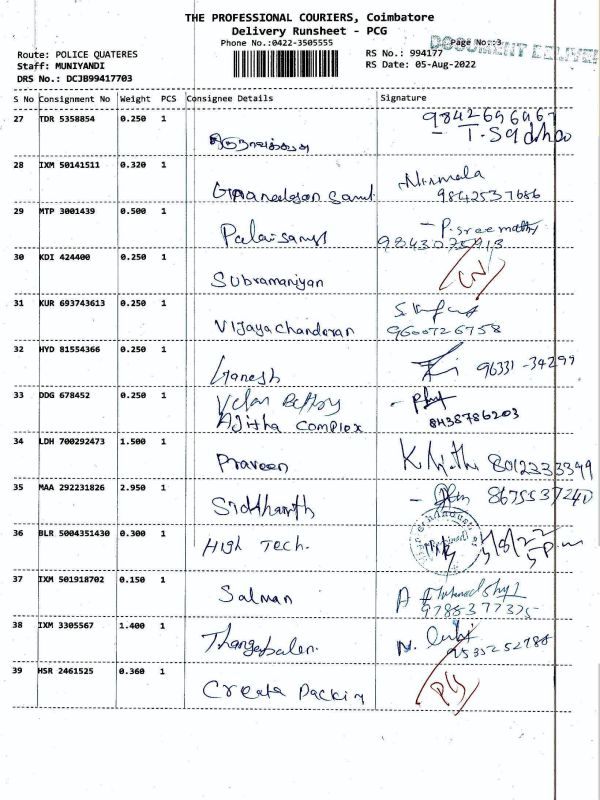 THE PROFESSIONAL COURIERS, Coimbatore
Delivery Runsheet - PCG
Phone No.:0422-3505555
Page No.:3
DOCUMENT DELIVER
Route: POLICE QUATERES
RS No.: 994177
Staff: MUNIYANDI
RS Date: 05-Aug-2022
DRS No.: DCJB99417703
S No Consignment No Weight PCS Consignee Details Signature
27 TDR 5358854 0.250 1 9842656467
- T. Sadhao
28 IXM 50141511 0.320 1 Nirmala
9842537686
29 MTP 3001439 0.500 1 Palaisamy - P. sreemathy
9843075913
30 KDI 424400 0.250 1 Subramaniyan
31 KUR 693743613 0.250 1 Vijayachandaran
9600726758
32 HYD 81554366 0.250 1 Ganesh 96331-34299
33 DDG 678452 0.250 1 Velan Battery
Ajitha Complex 8438786203
34 LDH 700292473 1.500 1 Praveen 8012333399
35 MAA 292231826 2.950 1 Siddharth 8675537240
36 BLR 5004351430 0.300 1 High Tech.
37 IXM 501918702 0.150 1 Salman
9788377325
38 IXM 3305567 1.400 1 Thangabalan.
39 HSR 2461525 0.360 1 Creata Packing